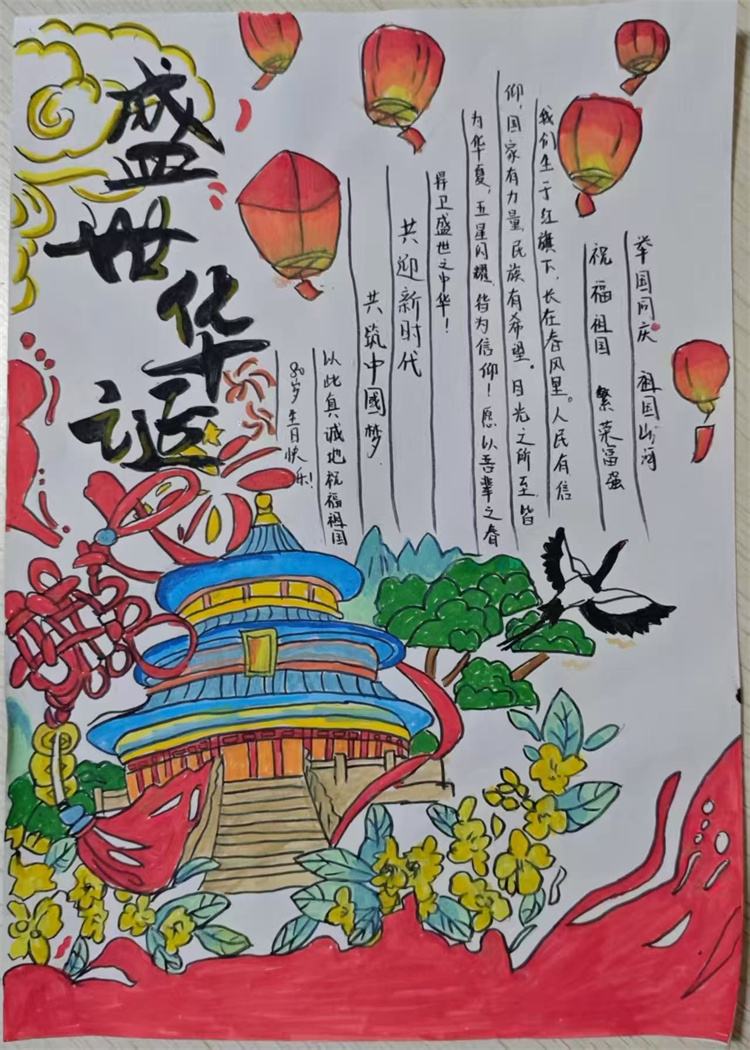 盛世华诞
举国同庆 祖国山河
祝福祖国 繁荣富强
我们生于红旗下,长在春风里。人民有信
仰,国家有力量,民族有希望。目光之所至,皆
为华夏,五星闪耀,皆为信仰!愿以吾辈之春
昇卫盛世之中华!
共迎新时代
共筑中國梦.
以此真诚地祝福祖国
80岁生日快乐!